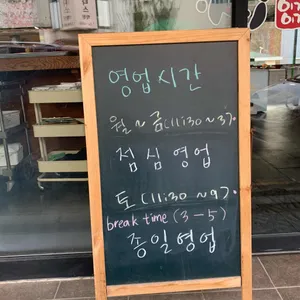 영업시간
월~금(11:30~3).
점심영업
토(11:30~9).
break time (3-5)
종일영업